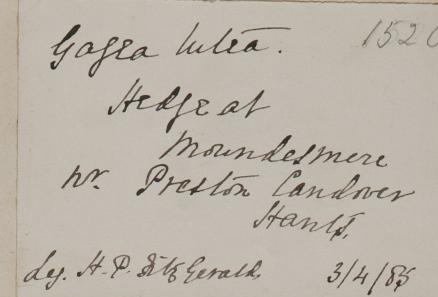 Gagea lutea. 1520
Hedge at
Moundesmere
nr. Preston Candover
Hants.
leg. H. P. FitzGerald. 3/4/85